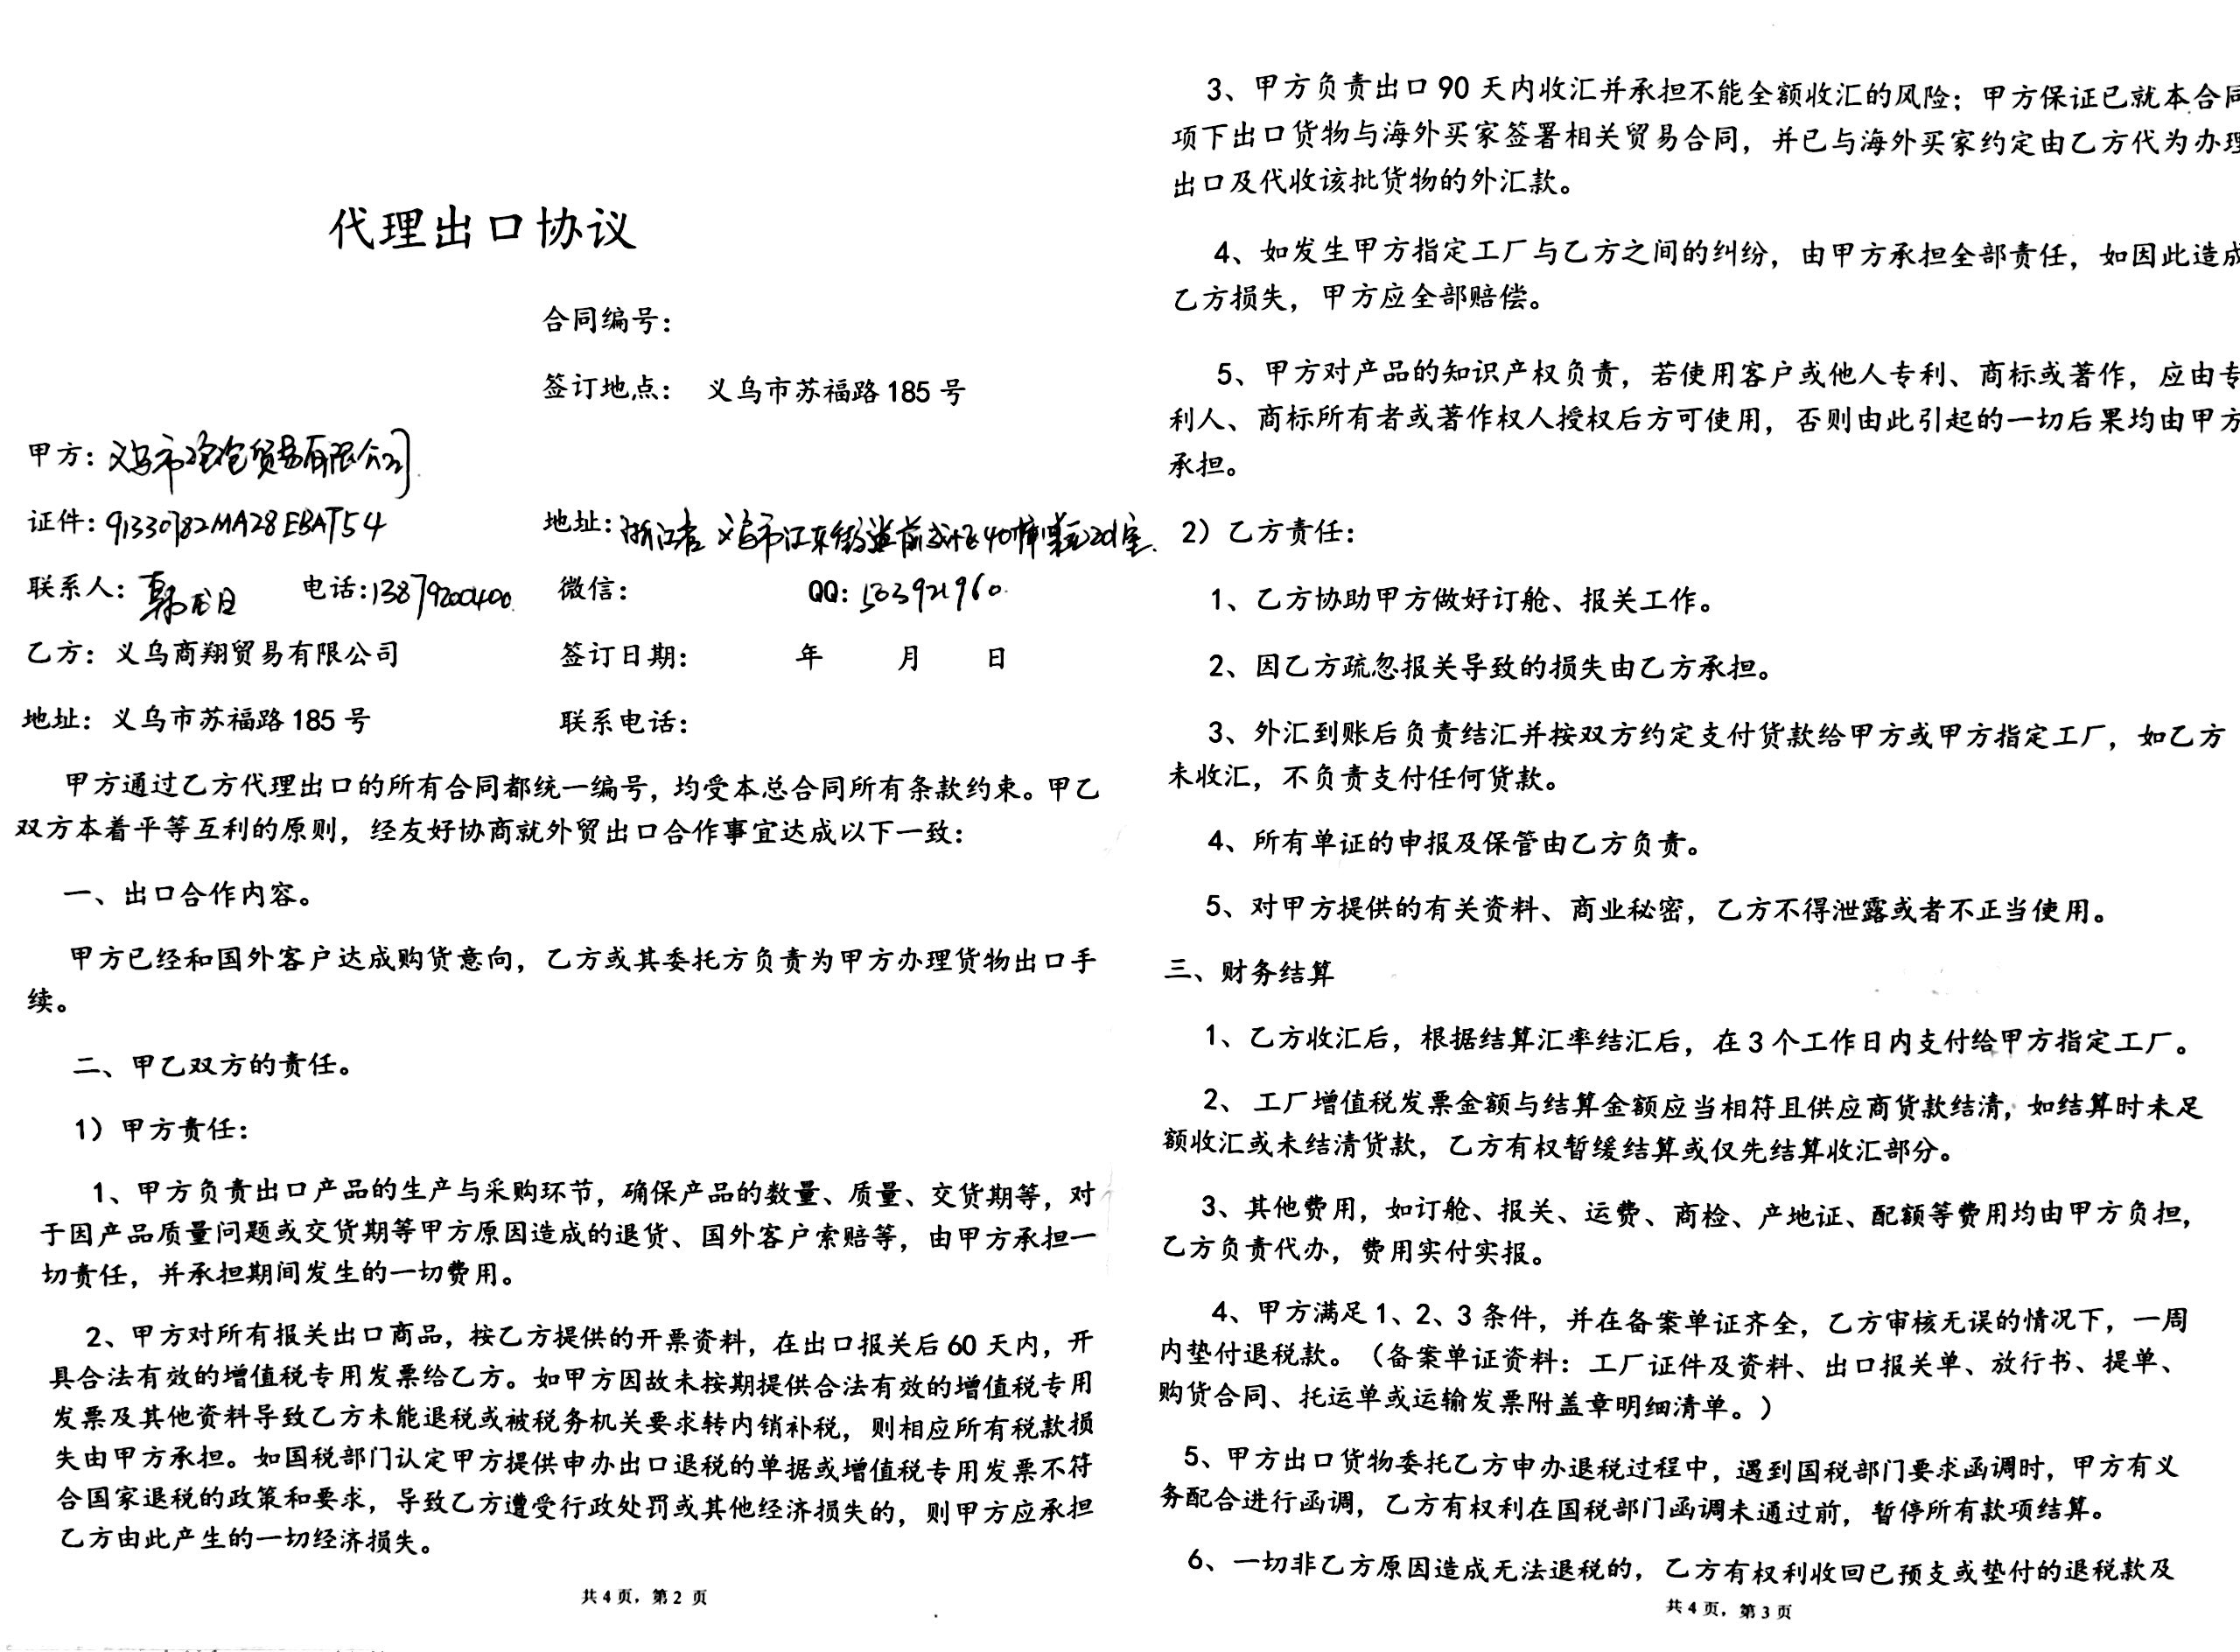 代理出口协议
合同编号：
签订地点： 义乌市苏福路 185 号
甲方：义乌市 贸易有限公司
证件：91330782MA28EBAT54
地址：浙江省 义乌市江东街道前成小区40幢 单元201室
联系人：韩 电话：13879200400 微信： QQ：503921960
乙方：义乌商翔贸易有限公司 签订日期： 年 月 日
地址：义乌市苏福路 185 号 联系电话：
甲方通过乙方代理出口的所有合同都统一编号，均受本总合同所有条款约束。甲乙
双方本着平等互利的原则，经友好协商就外贸出口合作事宜达成以下一致：
一、出口合作内容。
甲方已经和国外客户达成购货意向，乙方或其委托方负责为甲方办理货物出口手
续。
二、甲乙双方的责任。
1）甲方责任：
1、甲方负责出口产品的生产与采购环节，确保产品的数量、质量、交货期等，对
于因产品质量问题或交货期等甲方原因造成的退货、国外客户索赔等，由甲方承担一
切责任，并承担期间发生的一切费用。
2、甲方对所有报关出口商品，按乙方提供的开票资料，在出口报关后 60 天内，开
具合法有效的增值税专用发票给乙方。如甲方因故未按期提供合法有效的增值税专用
发票及其他资料导致乙方未能退税或被税务机关要求转内销补税，则相应所有税款损
失由甲方承担。如国税部门认定甲方提供申办出口退税的单据或增值税专用发票不符
合国家退税的政策和要求，导致乙方遭受行政处罚或其他经济损失的，则甲方应承担
乙方由此产生的一切经济损失。
共 4 页，第 2 页
3、甲方负责出口 90 天内收汇并承担不能全额收汇的风险；甲方保证已就本合同
项下出口货物与海外买家签署相关贸易合同，并已与海外买家约定由乙方代为办理
出口及代收该批货物的外汇款。
4、如发生甲方指定工厂与乙方之间的纠纷，由甲方承担全部责任，如因此造成
乙方损失，甲方应全部赔偿。
5、甲方对产品的知识产权负责，若使用客户或他人专利、商标或著作，应由专
利人、商标所有者或著作权人授权后方可使用，否则由此引起的一切后果均由甲方
承担。
2）乙方责任：
1、乙方协助甲方做好订舱、报关工作。
2、因乙方疏忽报关导致的损失由乙方承担。
3、外汇到账后负责结汇并按双方约定支付货款给甲方或甲方指定工厂，如乙方
未收汇，不负责支付任何货款。
4、所有单证的申报及保管由乙方负责。
5、对甲方提供的有关资料、商业秘密，乙方不得泄露或者不正当使用。
三、财务结算
1、乙方收汇后，根据结算汇率结汇后，在 3 个工作日内支付给甲方指定工厂。
2、 工厂增值税发票金额与结算金额应当相符且供应商货款结清，如结算时未足
额收汇或未结清货款，乙方有权暂缓结算或仅先结算收汇部分。
3、其他费用，如订舱、报关、运费、商检、产地证、配额等费用均由甲方负担，
乙方负责代办，费用实付实报。
4、甲方满足 1、2、3 条件，并在备案单证齐全，乙方审核无误的情况下，一周
内垫付退税款。（备案单证资料：工厂证件及资料、出口报关单、放行书、提单、
购货合同、托运单或运输发票附盖章明细清单。）
5、甲方出口货物委托乙方申办退税过程中，遇到国税部门要求函调时，甲方有义
务配合进行函调，乙方有权利在国税部门函调未通过前，暂停所有款项结算。
6、一切非乙方原因造成无法退税的，乙方有权利收回已预支或垫付的退税款及
共 4 页，第 3 页